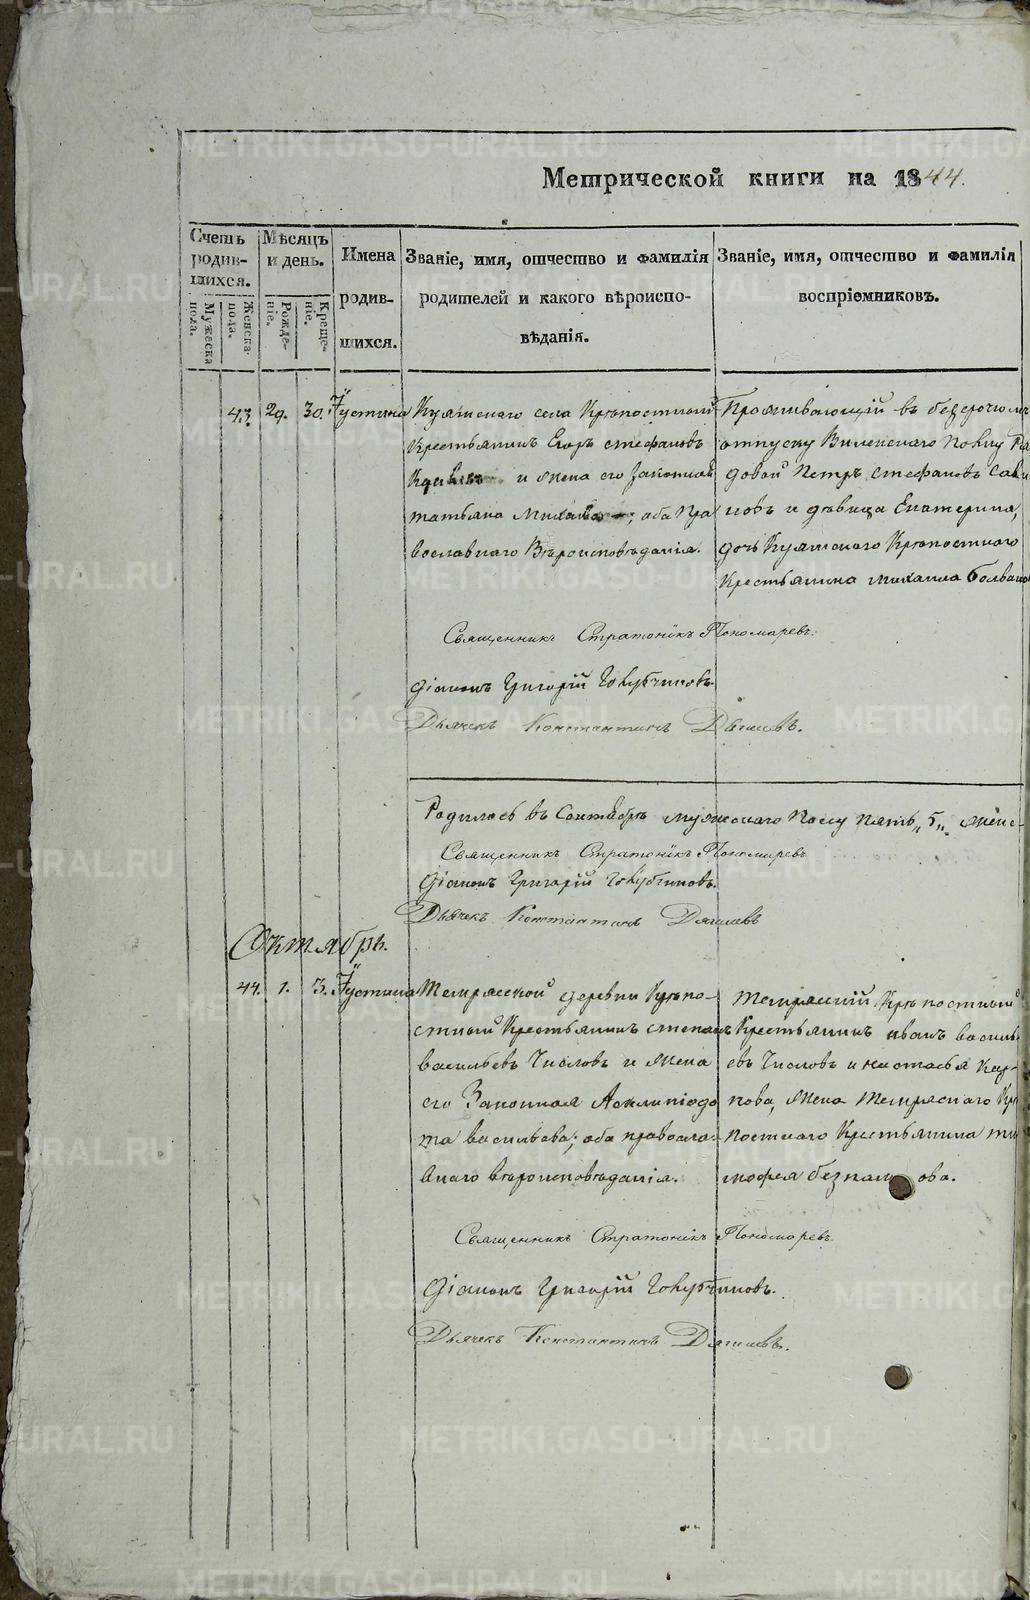 Метрической книги на 1844.
Счетъ родившихся.
Мужеска пола.
Женска пола.
Мѣсяцъ и день.
Рожденіе.
Крещеніе.
Имена родившихся.
Званіе, имя, отчество и фамилія родителей и какого вѣроисповѣданія.
Званіе, имя, отчество и фамилія воспріемниковъ.
43. 29. 30. Іустина
Куяшскаго села Крѣпостный
Крестьянинъ Егоръ Стефановъ
и жена его законная
Татьяна; оба пра
вославнаго Вѣроисповѣданія.
Проживающій въ безсрочномъ
отпуску Виленскаго Полку Ря
довой Петръ Стефановъ Сав
новъ и дѣвица Екатерина,
дочь Куяшскаго Крѣпостнаго
Крестьянина Михаила
Священникъ Стратоникъ Пономаревъ.
Діаконъ Григорій Голубчиковъ.
Дьячекъ Константинъ
Родилось въ Сентябрѣ мужескаго Полу Пять "5", женс-
Священникъ Стратоникъ Пономаревъ
Діаконъ Григорій Голубчиковъ.
Дьячекъ Константинъ Дягилевъ
Октябрь.
44. 1. 3. Іустина
Темряской деревни Крѣпо-
стный Крестьянинъ Степанъ
Васильевъ Числовъ и жена
его Законная Асклипіодо
та Васильева; оба правосла-
внаго вѣроисповѣданія.
Темряскій Крѣпостный
Крестьянинъ Иванъ Василь
евъ Числовъ и Настасья Кар-
пова, жена Темряскаго Крѣ
постнаго Крестьянина Ти
мофея
Священникъ Стратоникъ Пономаревъ.
Діаконъ Григорій Голубчиковъ.
Дьячекъ Константинъ Дягилевъ.
METRIKI.GASO-URAL.RU